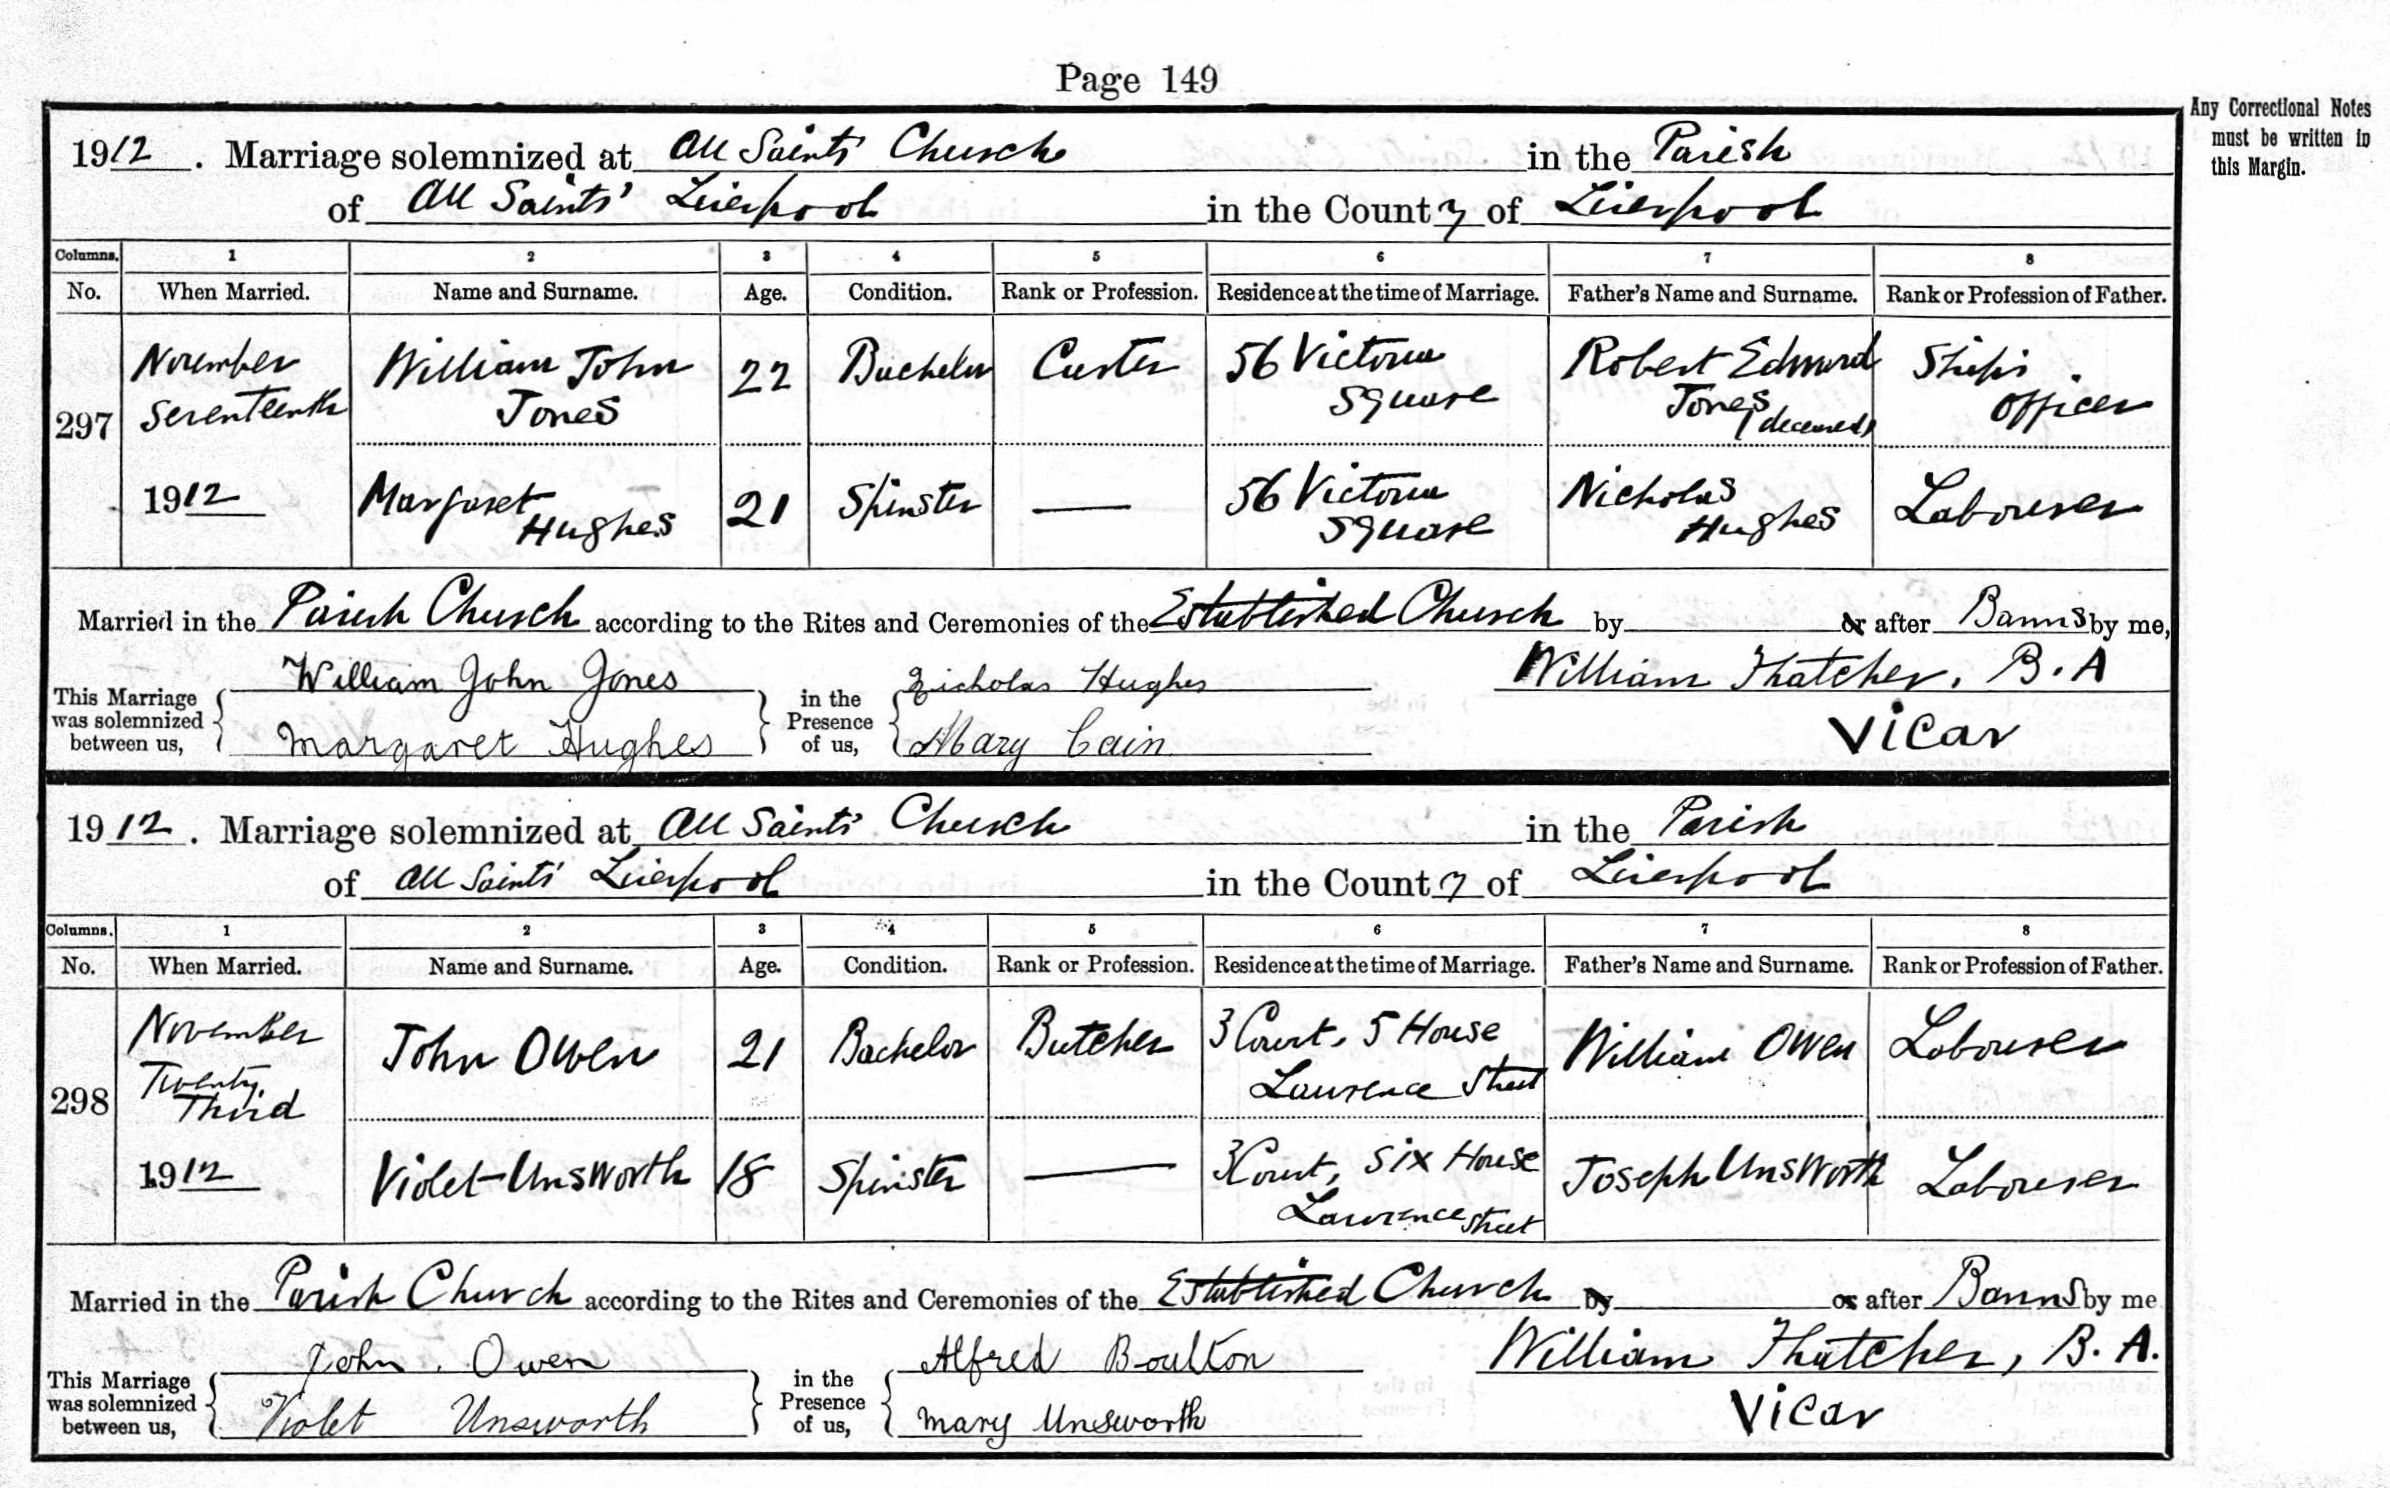 Page 149
Any Correctional Notes
must be written in
this Margin.
1912. Marriage solemnized at All Saints' Church in the Parish
of All Saints' Liverpool in the County of Liverpool
Columns. 1 2 3 4 5 6 7 8
No. When Married. Name and Surname. Age. Condition. Rank or Profession. Residence at the time of Marriage. Father's Name and Surname. Rank or Profession of Father.
297 November Seventeenth 1912
William John Jones 22 Bachelor Carter 56 Victoria Square Robert Edward Jones (deceased) Ship's Officer
Margaret Hughes 21 Spinster — 56 Victoria Square Nicholas Hughes Labourer
Married in the Parish Church according to the Rites and Ceremonies of the Established Church by or after Banns by me,
This Marriage was solemnized between us, William John Jones
Margaret Hughes
in the Presence of us, Nicholas Hughes
Mary Cain
William Thatcher, B.A
Vicar
1912. Marriage solemnized at All Saints' Church in the Parish
of All Saints' Liverpool in the County of Liverpool
Columns. 1 2 3 4 5 6 7 8
No. When Married. Name and Surname. Age. Condition. Rank or Profession. Residence at the time of Marriage. Father's Name and Surname. Rank or Profession of Father.
298 November Twenty Third 1912
John Owen 21 Bachelor Butcher 3 Court, 5 House Lawrence Street William Owen Labourer
Violet Unsworth 18 Spinster — 3 Court, Six House Lawrence Street Joseph Unsworth Labourer
Married in the Parish Church according to the Rites and Ceremonies of the Established Church by or after Banns by me
This Marriage was solemnized between us, John Owen
Violet Unsworth
in the Presence of us, Alfred Boulton
Mary Unsworth
William Thatcher, B.A.
Vicar